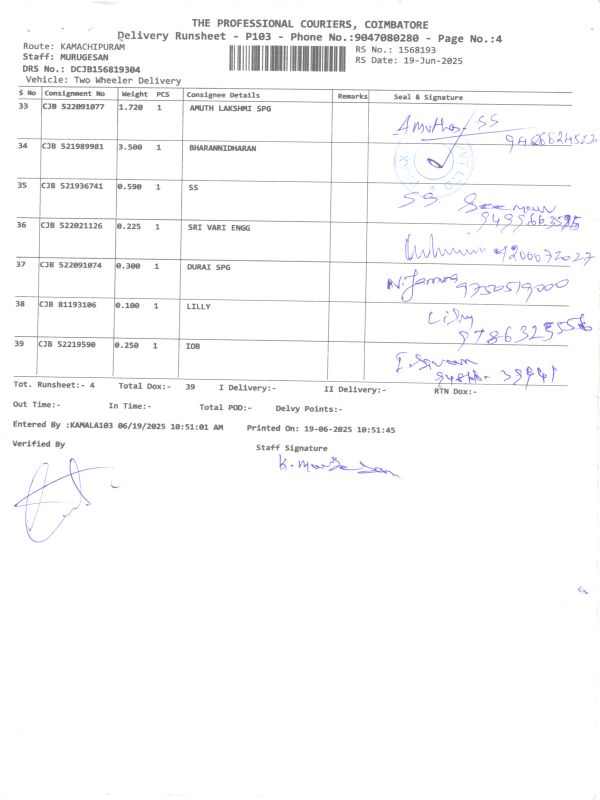 THE PROFESSIONAL COURIERS, COIMBATORE
Delivery Runsheet - P103 - Phone No.:9047080280 - Page No.:4
Route: KAMACHIPURAM
RS No.: 1568193
Staff: MURUGESAN
RS Date: 19-Jun-2025
DRS No.: DCJB156819304
Vehicle: Two Wheeler Delivery
S No Consignment No Weight PCS Consignee Details Remarks Seal & Signature
33 CJB 522091077 1.720 1 AMUTH LAKSHMI SPG
SS
34 CJB 521989981 3.500 1 BHARANNIDHARAN
35 CJB 521936741 0.590 1 SS
SS
36 CJB 522021126 0.225 1 SRI VARI ENGG
9200672027
37 CJB 522091074 0.300 1 DURAI SPG
9750519000
38 CJB 81193106 0.100 1 LILLY
Lilly
9786325556
39 CJB 52219590 0.250 1 IOB
Tot. Runsheet:- 4 Total Dox:- 39 I Delivery:- II Delivery:- RTN Dox:-
Out Time:- In Time:- Total POD:- Delvy Points:-
Entered By :KAMALA103 06/19/2025 10:51:01 AM Printed On: 19-06-2025 10:51:45
Verified By
Staff Signature